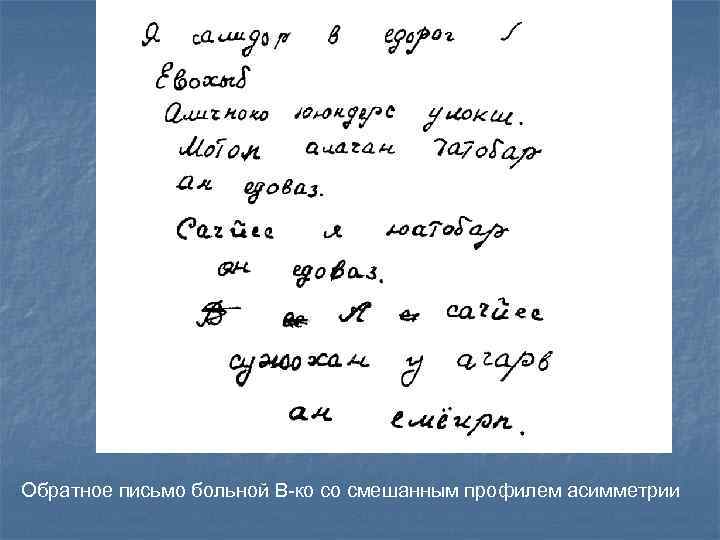 Я салидор в едорог
Евохыб
Аличноко ююндерс улокш.
Мотоп алачан татобар
ан едоваз.
Сачйес я юатобар
он едоваз.
В Я сачйес
сужохан у агарв
ан емёирп.
Обратное письмо больной В-ко со смешанным профилем асимметрии